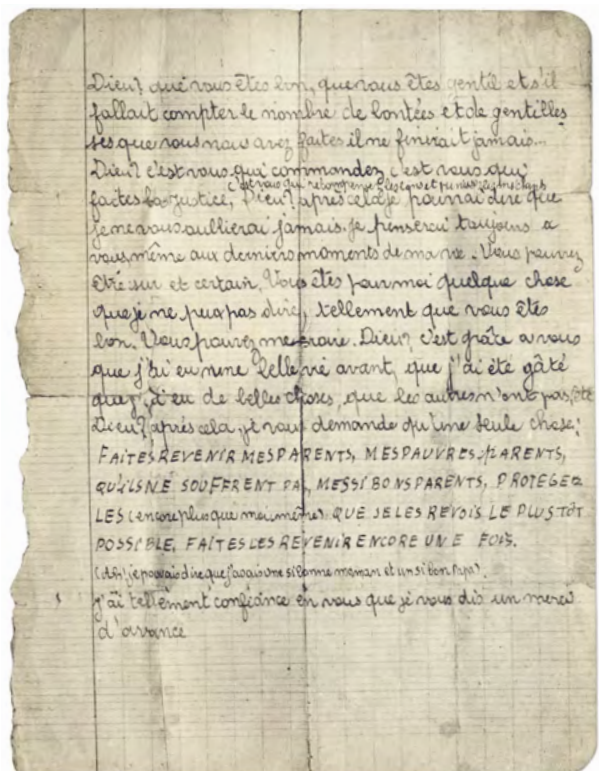 Dieu? que vous êtes bon, que vous êtes gentil et s'il
fallait compter le nombre de bontées et de gentilles
ses que vous nous avez faites il ne finirait jamais...
Dieu? c'est vous qui commandez c'est vous qui
c'est vous qui récompensez les bons et punissez les méchants
faites la justice, Dieu? après cela je pourrai dire que
je ne vous oublierai jamais. Je penserai toujours a
vous, même aux derniers moments de ma vie. Vous pouvez
être sur et certain. Vous êtes pour moi quelque chose
que je ne peux pas dire, tellement que vous êtes
bon. Vous pouvez me croire. Dieu? c'est grâte a vous
que j'ai eu une belle vie avant, que j'ai été gâté
que j'ai eu de belles choses, que les autres n'ont pas,
Dieu? après cela, je vous demande qu'une seule chose:
FAITES REVENIR MES PARENTS, MES PAUVRES PARENTS,
QU'ILS NE SOUFFRENT PAS, MES SI BONS PARENTS, PROTEGEZ
LES (encore plus que moi même) QUE JE LES REVOIS LE PLUS TÔT
POSSIBLE, FAITES LES REVENIR ENCORE UNE FOIS.
(Ah! je pouvais dire que j'avais une si bonne maman et un si bon Papa).
j'ai tellement confiance en vous que je vous dis un merci
d'avance